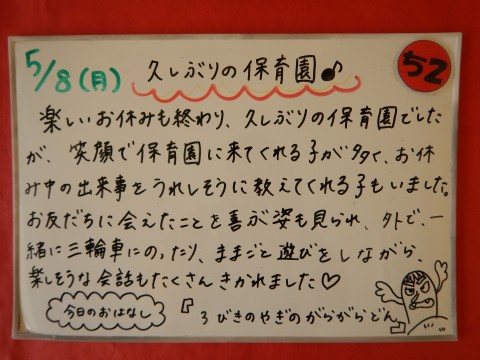 5/8(月) 久しぶりの保育園♪
ち2
楽しいお休みも終わり、久しぶりの保育園でした
が、笑顔で保育園に来てくれる子が多く、お休
み中の出来事をうれしそうに教えてくれる子もいました。
お友だちに会えたことを喜ぶ姿も見られ、外で、一
緒に三輪車にのったり、ままごと遊びをしながら、
楽しそうな会話もたくさんきかれました♡
今日のおはなし
『3びきのやぎのがらがらどん